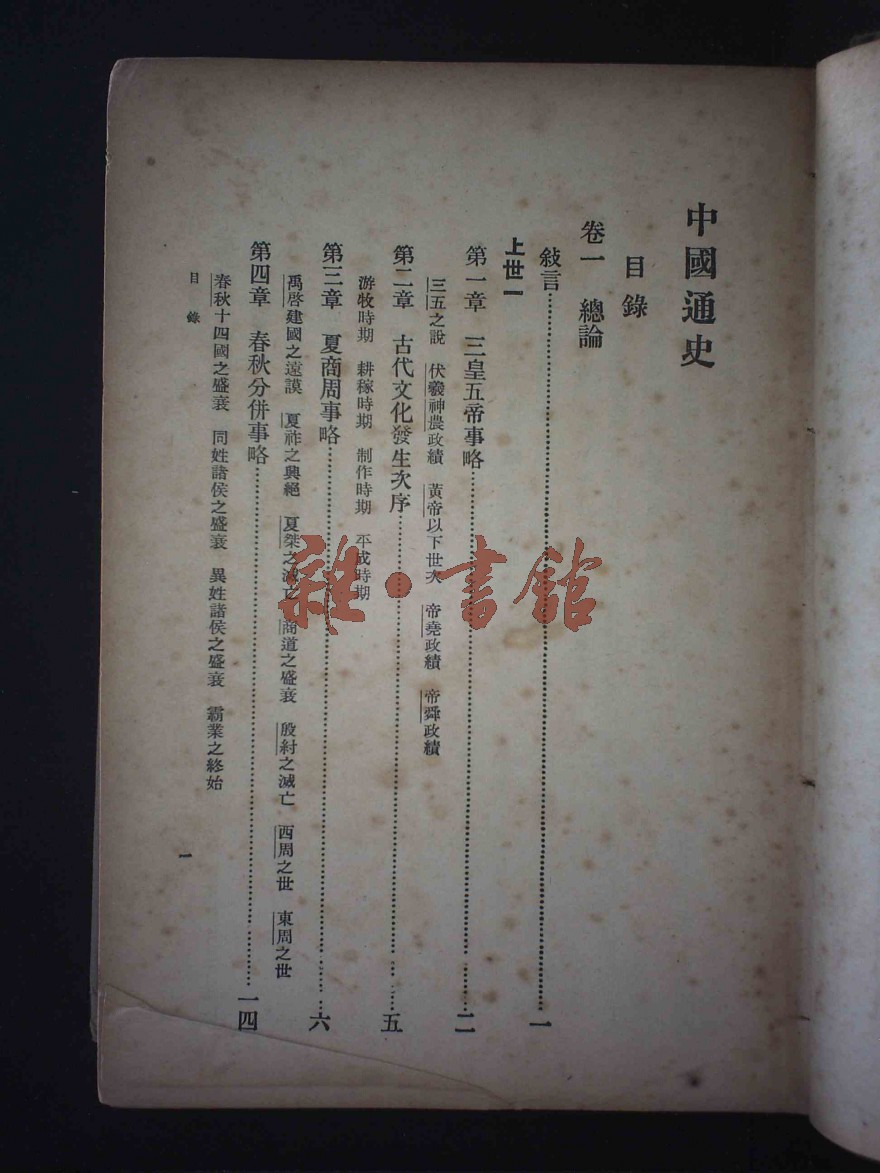 中國通史
目錄
卷一　總論
敍言……一
上世一
第一章　三皇五帝事略……二
三五之說　伏羲神農政績　黃帝以下世次　帝堯政績　帝舜政績
第二章　古代文化發生次序……五
游牧時期　耕稼時期　制作時期　平成時期
第三章　夏商周事略……六
禹啓建國之遠謨　夏祚之興絕　夏桀之滅亡　商道之盛衰　殷紂之滅亡　西周之世　東周之世
第四章　春秋分併事略……一四
春秋十四國之盛衰　同姓諸侯之盛衰　異姓諸侯之盛衰　霸業之終始
目錄
一
雜·書館